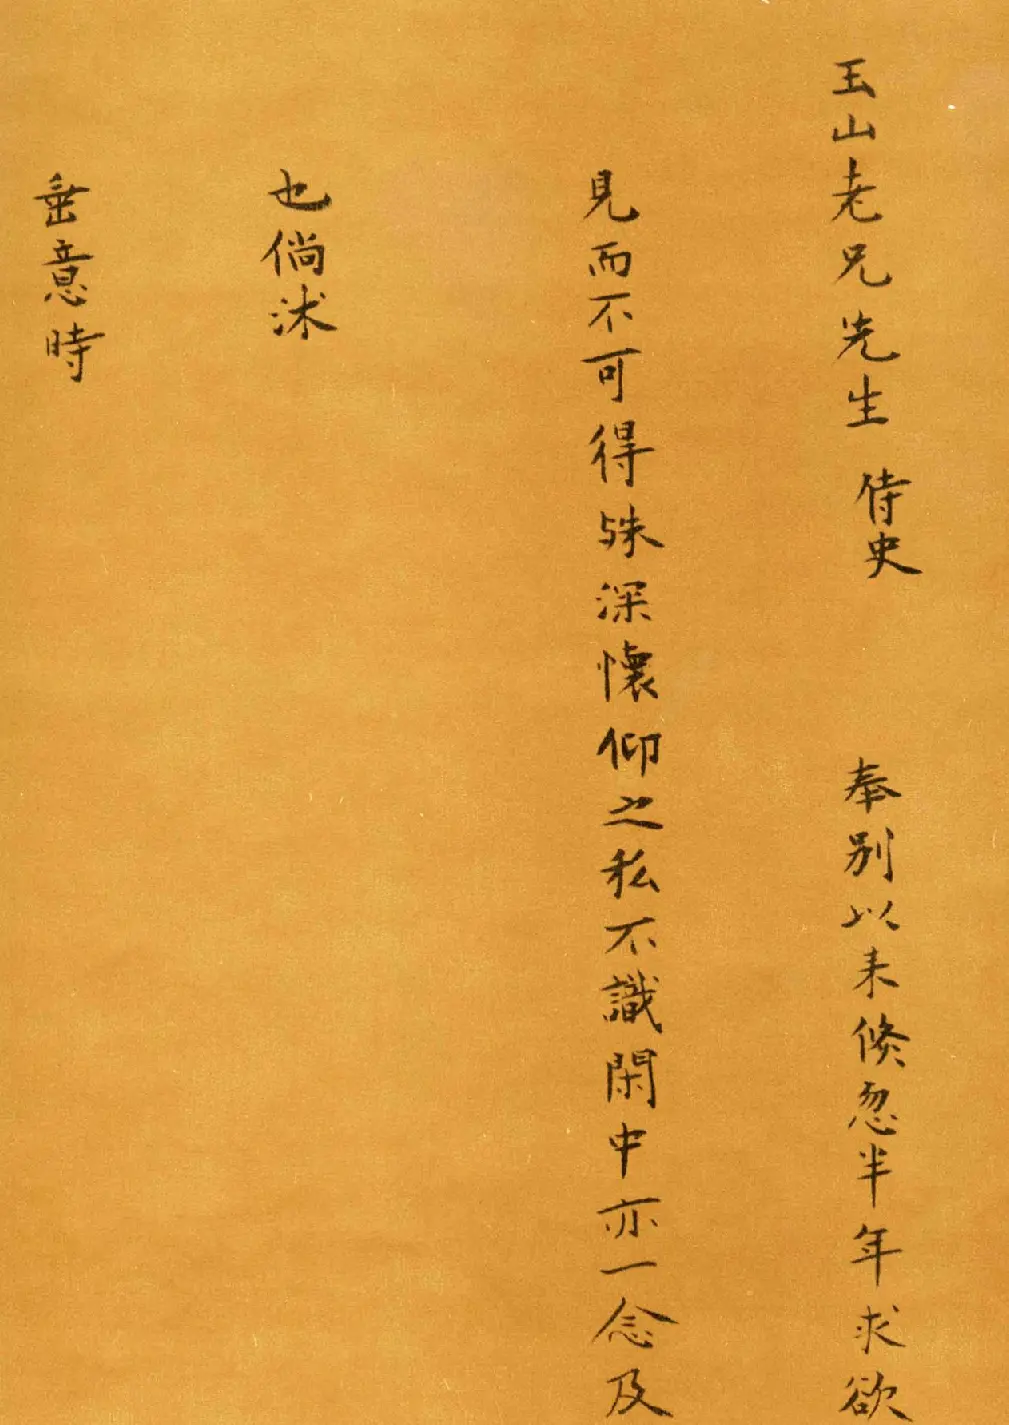 玉山老兄先生 侍史 奉別以来倏忽半年求欲
見而不可得殊深懷仰之私不識閑中亦一念及
也倘沭
垂意時